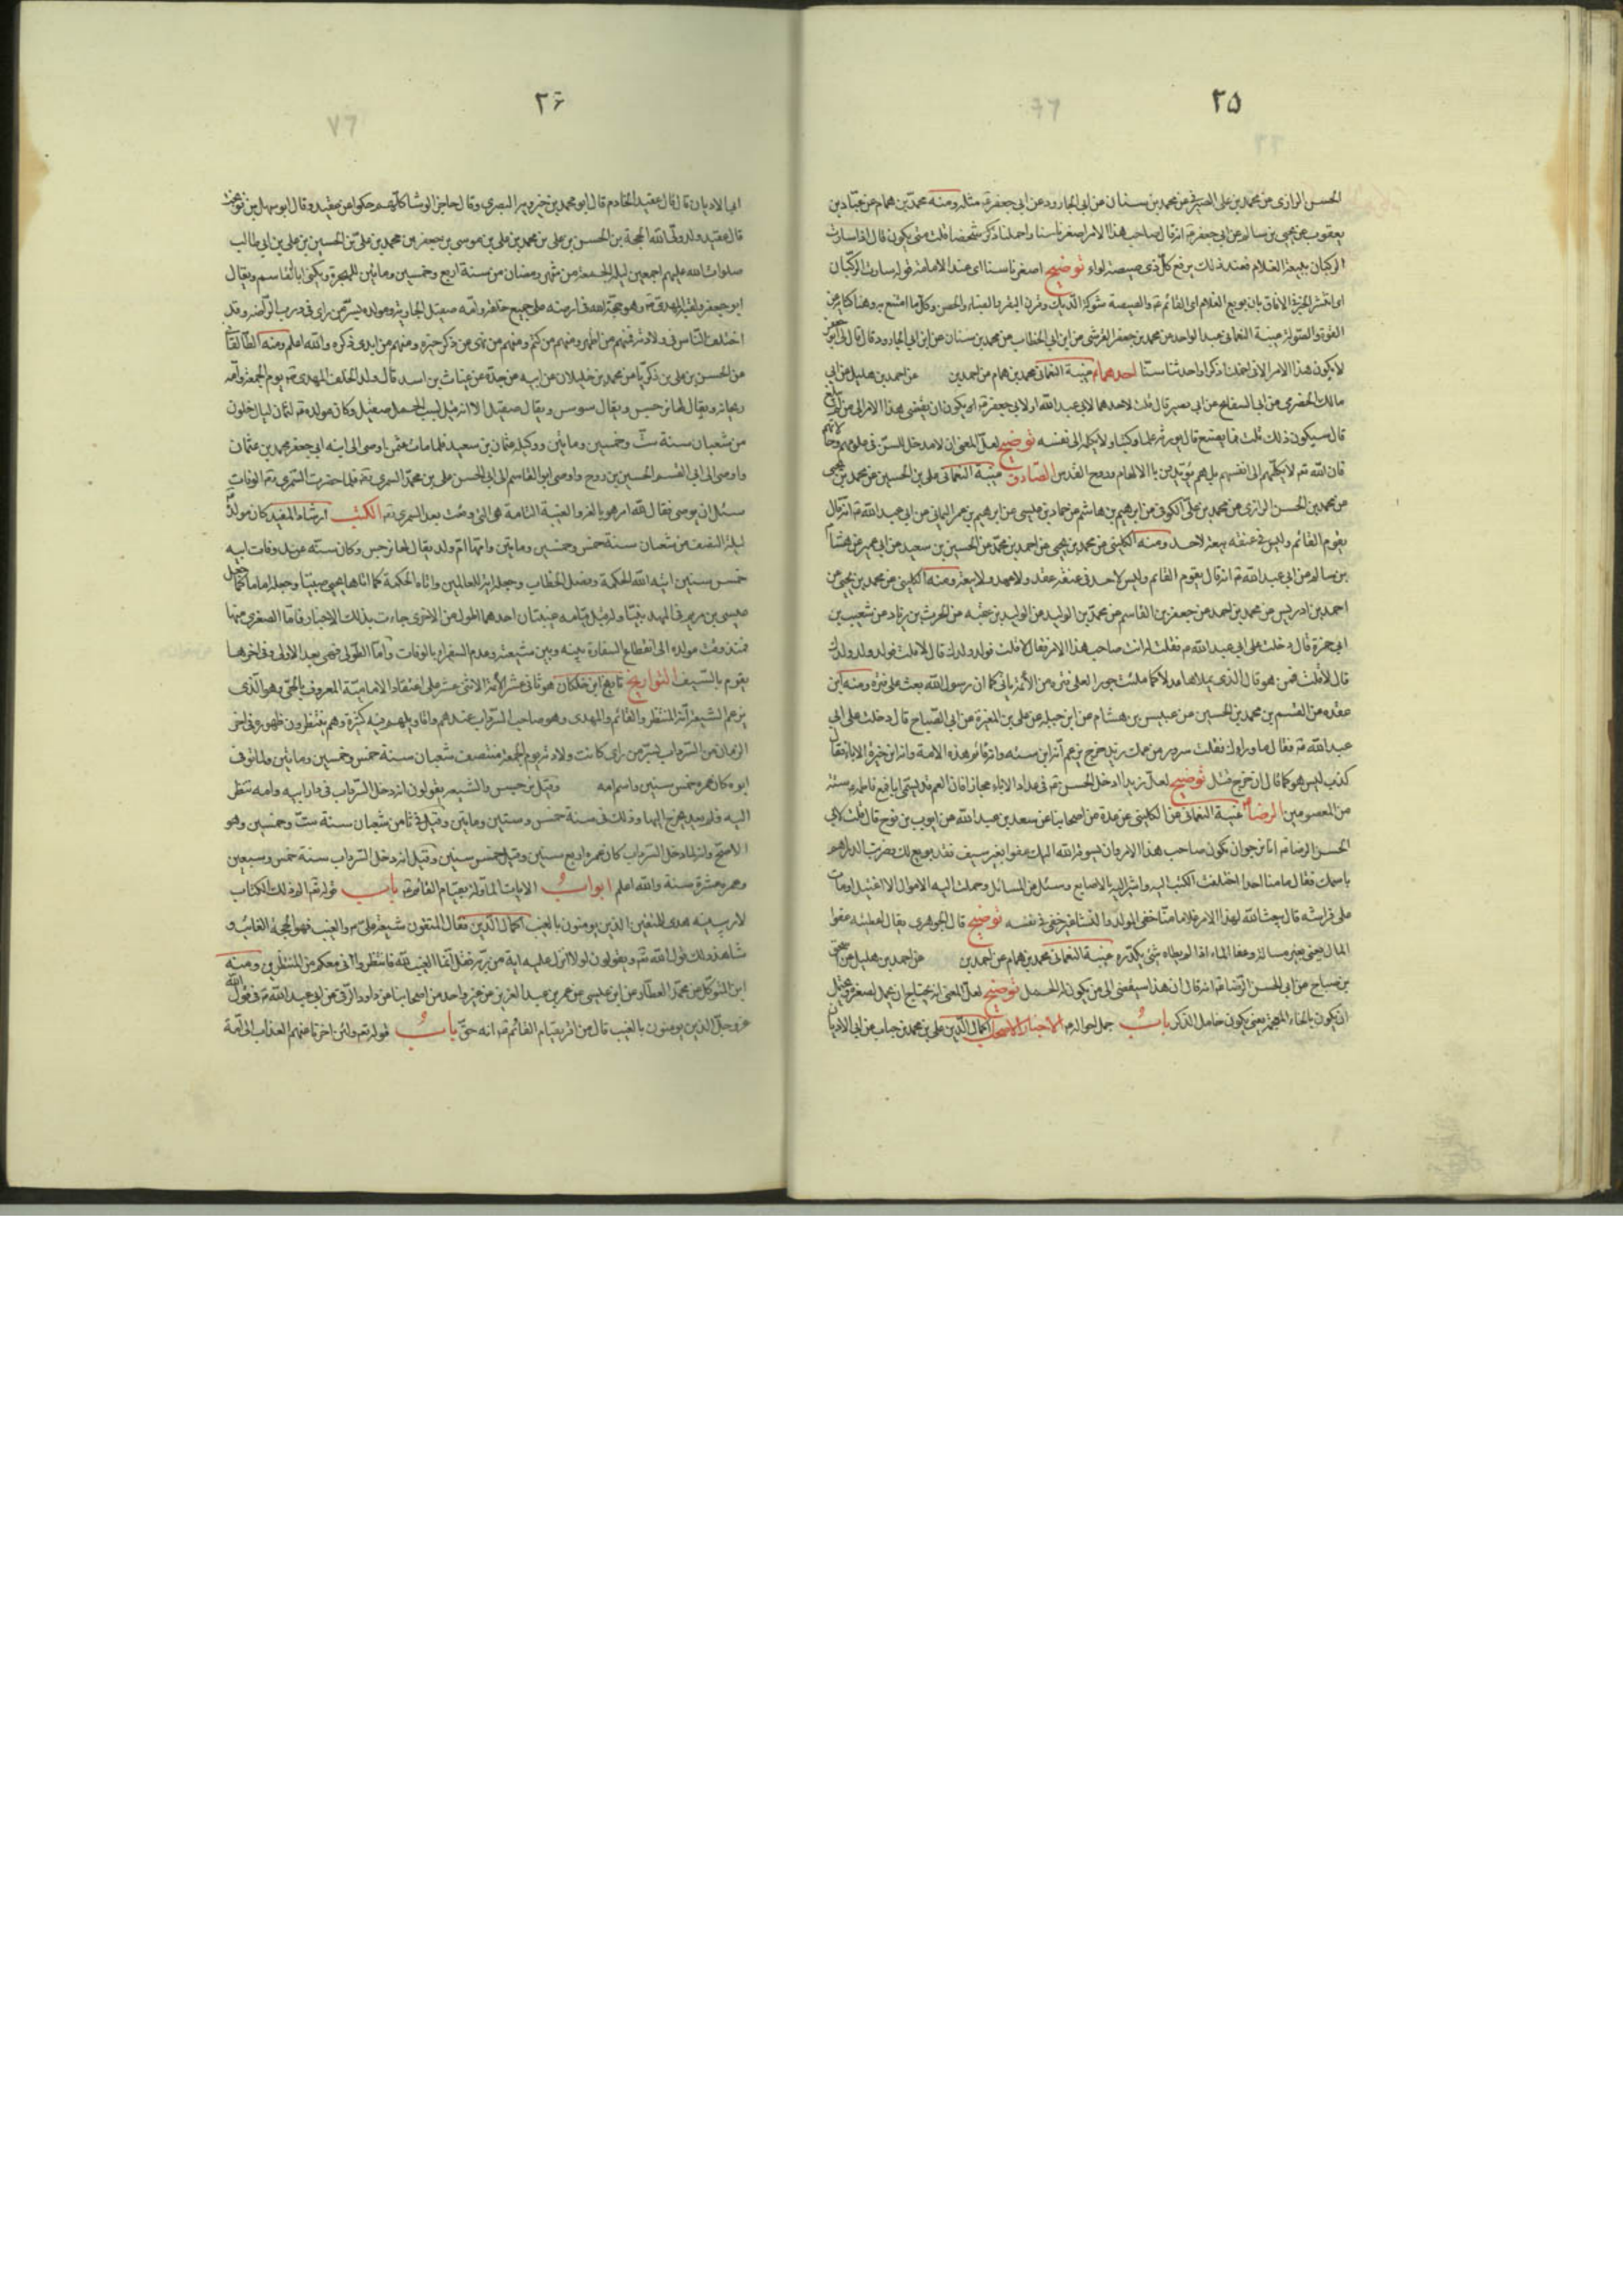 ٢٥
الحسن الرازى عن محمد بن على الصيرفى عن محمد بن سنان عن ابى الجارود عن ابى جعفر ع مثله ومنه محمد بن همام عن عباد بن
يعقوب عن يحيى بن سالم عن ابى جعفر ع انه قال صاحب هذا الامر اصغرنا سنا واخملنا ذكر شخصا قلت متى يكون قال اذا سارت
الركبان ببيعة الغلام فعند ذلك يرفع كل ذى صيصة لواء توضيح اصغرنا سنا اى عند الامامة قوله سارت الركبان
اى بان يبويع الغلام اى القائم ع والصيصة شوكة الديك وقرن البقر والحصن وكل ما امتنع به وهنا كناية عن
القوة والصولة غيبة النعمانى عبد الواحد عن محمد بن جعفر القرشى عن ابن ابى الخطاب عن محمد بن سنان عن ابى الجارود قال قال لى ابو جعفر
لا يكون هذا الامر الا فى اخملنا ذكرا واحدثنا سنا احدهما غيبة النعمانى محمد بن همام عن احمد بن عن احمد بن هليل عن ابى
مالك الحضرمى عن ابى السفاتج عن ابى بصير قال قلت لاحدهما لابى عبد الله او لابى جعفر ع ايكون ان يفضى هذا الامر الى من لم يبلغ
قال سيكون ذلك قلت فما يصنع قال يورثه علما وكتبا ولا يكله الى نفسه توضيح لعل المعنى ان لا مدخل للسن فى علومهم
فان الله تع لا يكلهم الى انفسهم بل هم مؤيدون بالالهام وروح القدس الصادق غيبة النعمانى على بن الحسين عن محمد بن يحيى
عن محمد بن الحسن الرازى عن محمد بن على الكوفى عن ابرهيم بن هاشم عن حماد بن عيسى عن ابرهيم بن عمر اليمانى عن ابى عبد الله ع انه قال
يقوم القائم وليس فى عنقه بيعة لاحد ومنه الكلينى عن محمد بن يحيى عن احمد بن محمد عن الحسين بن سعيد عن ابن ابى عمير عن هشام
بن سالم عن ابى عبد الله ع انه قال يقوم القائم وليس لاحد فى عنقه عقد ولا عهد ولا بيعة ومنه الكلينى عن محمد بن يحيى عن
احمد بن ادريس عن محمد بن احمد عن جعفر بن القاسم عن محمد بن الوليد عن الوليد بن عقبه عن الحرث بن زياد عن شعيب بن
ابى حمزة قال دخلت على ابى عبد الله ع فقلت له انت صاحب هذا الامر فقال لا قلت فولدك قال لا قلت فولد ولدك
قال لا قلت فمن هو قال الذى يملاها عدلا كما ملئت جورا لعلى فترة من الائمة ياتى كما ان رسول الله بعث على فترة ومنه ابن
عقده عن القسم بن محمد بن الحسين عن عبيس بن هشام عن ابن جبله عن على بن المغيرة عن ابى الصباح قال دخلت على ابى
عبد الله ع فقال ما وراءك فقلت سرور من عمك زيد خرج يزعم انه ابن سبيه وانه قائم هذه الامة وانه ابن خيرة الاماء فقال
كذب ليس هو كما قال ان خرج قتل توضيح لعل زيدا ادخل الحسن ع فى عداد الاباء مجازا فان العم قد يسمى ابا فمع فاطمه ع ستة
من المعصومين الرضا غيبة النعمانى عن الكلينى عن عدة من اصحابنا عن سعد بن عبد الله عن ايوب بن نوح قال قلت لابى
الحسن الرضا ع انا نرجو ان تكون صاحب هذا الامر وان يسوقه الله اليك عفوا بغير سيف فقد بويع لك وضربت الدراهم
باسمك فقال ما منا احد اختلفت الكتب اليه واشير اليه بالاصابع وسئل عن المسائل وحملت اليه الاموال الا اغتيل او مات
على فراشه حتى يبعث الله لهذا الامر غلاما منا خفى المولد والمنشا غير خفى فى نفسه توضيح قال الجوهرى يقال اعطيته عفو
المال يعنى بغير مسالة وعفا الماء اذا لم يطاه شئ يكدره غيبة النعمانى محمد بن همام عن احمد بن عن احمد بن هليل عن
بن صباح عن ابى الحسن الرضا ع انه قال ان هذا سيفضى الى من يكون له الحمل توضيح لعل المعنى انه يحتاج ان يحمل لصغره ويحتمل
ان يكون بالخاء المعجمة يعنى يكون خامل الذكر باب جمل احواله ع الاخبار الاصحاب اكمال الدين على بن محمد بن حباب عن ابى الاديان
٢۶
ابى الاديان قال قال عقيد الخادم قال ابو محمد بن خيرويه البصرى وقال حاجز الوشا كلهم حكوا عن عقيد وقال ابو سهل بن نوبخت
قال عقيد ولد ولى الله الحجة بن الحسن بن على بن محمد بن على بن موسى بن جعفر بن محمد بن على بن الحسين بن على بن ابى طالب
صلوات الله عليهم اجمعين ليلة الجمعة من شهر رمضان من سنة اربع وخمسين ومائتين للهجرة ويكنى ابا القاسم ويقال
ابو جعفر ولقبه المهدى ع وهو حجة الله فى ارضه على جميع خلقه وامه صيقل الجارية ومولده بسر من راى فى درب الراضة وقد
اختلف الناس فى ولادته فمنهم من اظهر ومنهم من كتم ومنهم من نهى عن ذكر خبره ومنهم من ابدى ذكره والله اعلم ومنه الطالقانى
عن الحسن بن على بن زكريا عن محمد بن خليلان عن ابيه عن جده عن غياث بن اسد قال ولد الخلف المهدى ع يوم الجمعة وامه
ريحانة ويقال لها نرجس ويقال سوسن ويقال صيقل الا انه قيل لسبب الحمل صيقل وكان مولده ع لثمان ليال خلون
من شعبان سنة ست وخمسين ومائتين ووكيله عثمان بن سعيد فلما مات عثمن اوصى الى ابنه ابى جعفر محمد بن عثمان
واوصى الى ابى القسم الحسين بن روح واوصى ابو القاسم الى ابى الحسن على بن محمد السمرى فلما حضرت السمرى الوفات
سئل ان يوصى فقال لله امر هو بالغه والغيبة التامة هى التى وقعت بعد السمرى الكتب ارشاد المفيد كان مولده
ليلة النصف من شعبان سنة خمس وخمسين ومايتين وامه ام ولد يقال لها نرجس وكان سنه عند وفات ابيه
خمس سنين اتيه الله الحكمة وفصل الخطاب وجعله اية للعالمين واتاه الحكمة كما اتاها يحيى صبيا وجعله اماما كما جعل
عيسى بن مريم فى المهد نبيا وله قبل قيامه غيبتان احدهما اطول من الاخرى جاءت بذلك الاخبار فاما الصغرى منها
فمنذ وقت مولده الى انقطاع السفارة بينه وبين شيعته وعدم السفراء بالوفات واما الطولى فهى بعد الاولى وفى اخرها
يقوم بالسيف التواريخ تاريخ ابن خلكان هو ثانى عشر الائمة الاثنى عشر على اعتقاد الامامية المعروف بالحجة وهو الذى
يزعم الشيعة انه المنتظر والقائم والمهدى وهو صاحب السرداب عندهم واقاويلهم فيه كثيرة وهم ينتظرون ظهوره فى اخر
الزمان من السرداب بسر من راى كانت ولادته يوم الجمعة منتصف شعبان سنة خمس وخمسين ومائتين ولما توفى
ابوه كان عمره خمس سنين واسم امه وقيل نرجس والشيعه يقولون انه دخل السرداب فى دار ابيه وامه تنظر
اليه فلم يعد يخرج اليها وذلك فى سنة خمس وستين ومايتين وقيل فى ثامن شعبان سنة ست وخمسين وهو
الاصح وانه لما دخل السرداب كان عمره اربع سنين وقيل خمس سنين وقيل انه دخل السرداب سنة خمس وسبعين
وعمره عشرة سنة والله اعلم ابواب الايات الماولة بقيام القائم ع باب قوله تع الم ذلك الكتاب
لا ريب فيه هدى للمتقين الذين يومنون بالغيب اكمال الدين فقال المتقون شيعة على ع والغيب فهو الحجة الغائب و
شاهد ذلك قول الله تع ويقولون لولا انزل عليه اية من ربه فقل انما الغيب لله فانتظروا انى معكم من المنتظرين ومنه
ابن المتوكل عن محمد العطار عن ابن عيسى عن عمر بن عبد العزيز عن غير واحد من اصحابنا عن داود الرقى عن ابى عبد الله ع فى قول الله
عز وجل الذين يومنون بالغيب قال من اقر بقيام القائم ع انه حق باب قوله تع ولئن اخرنا عنهم العذاب الى امة